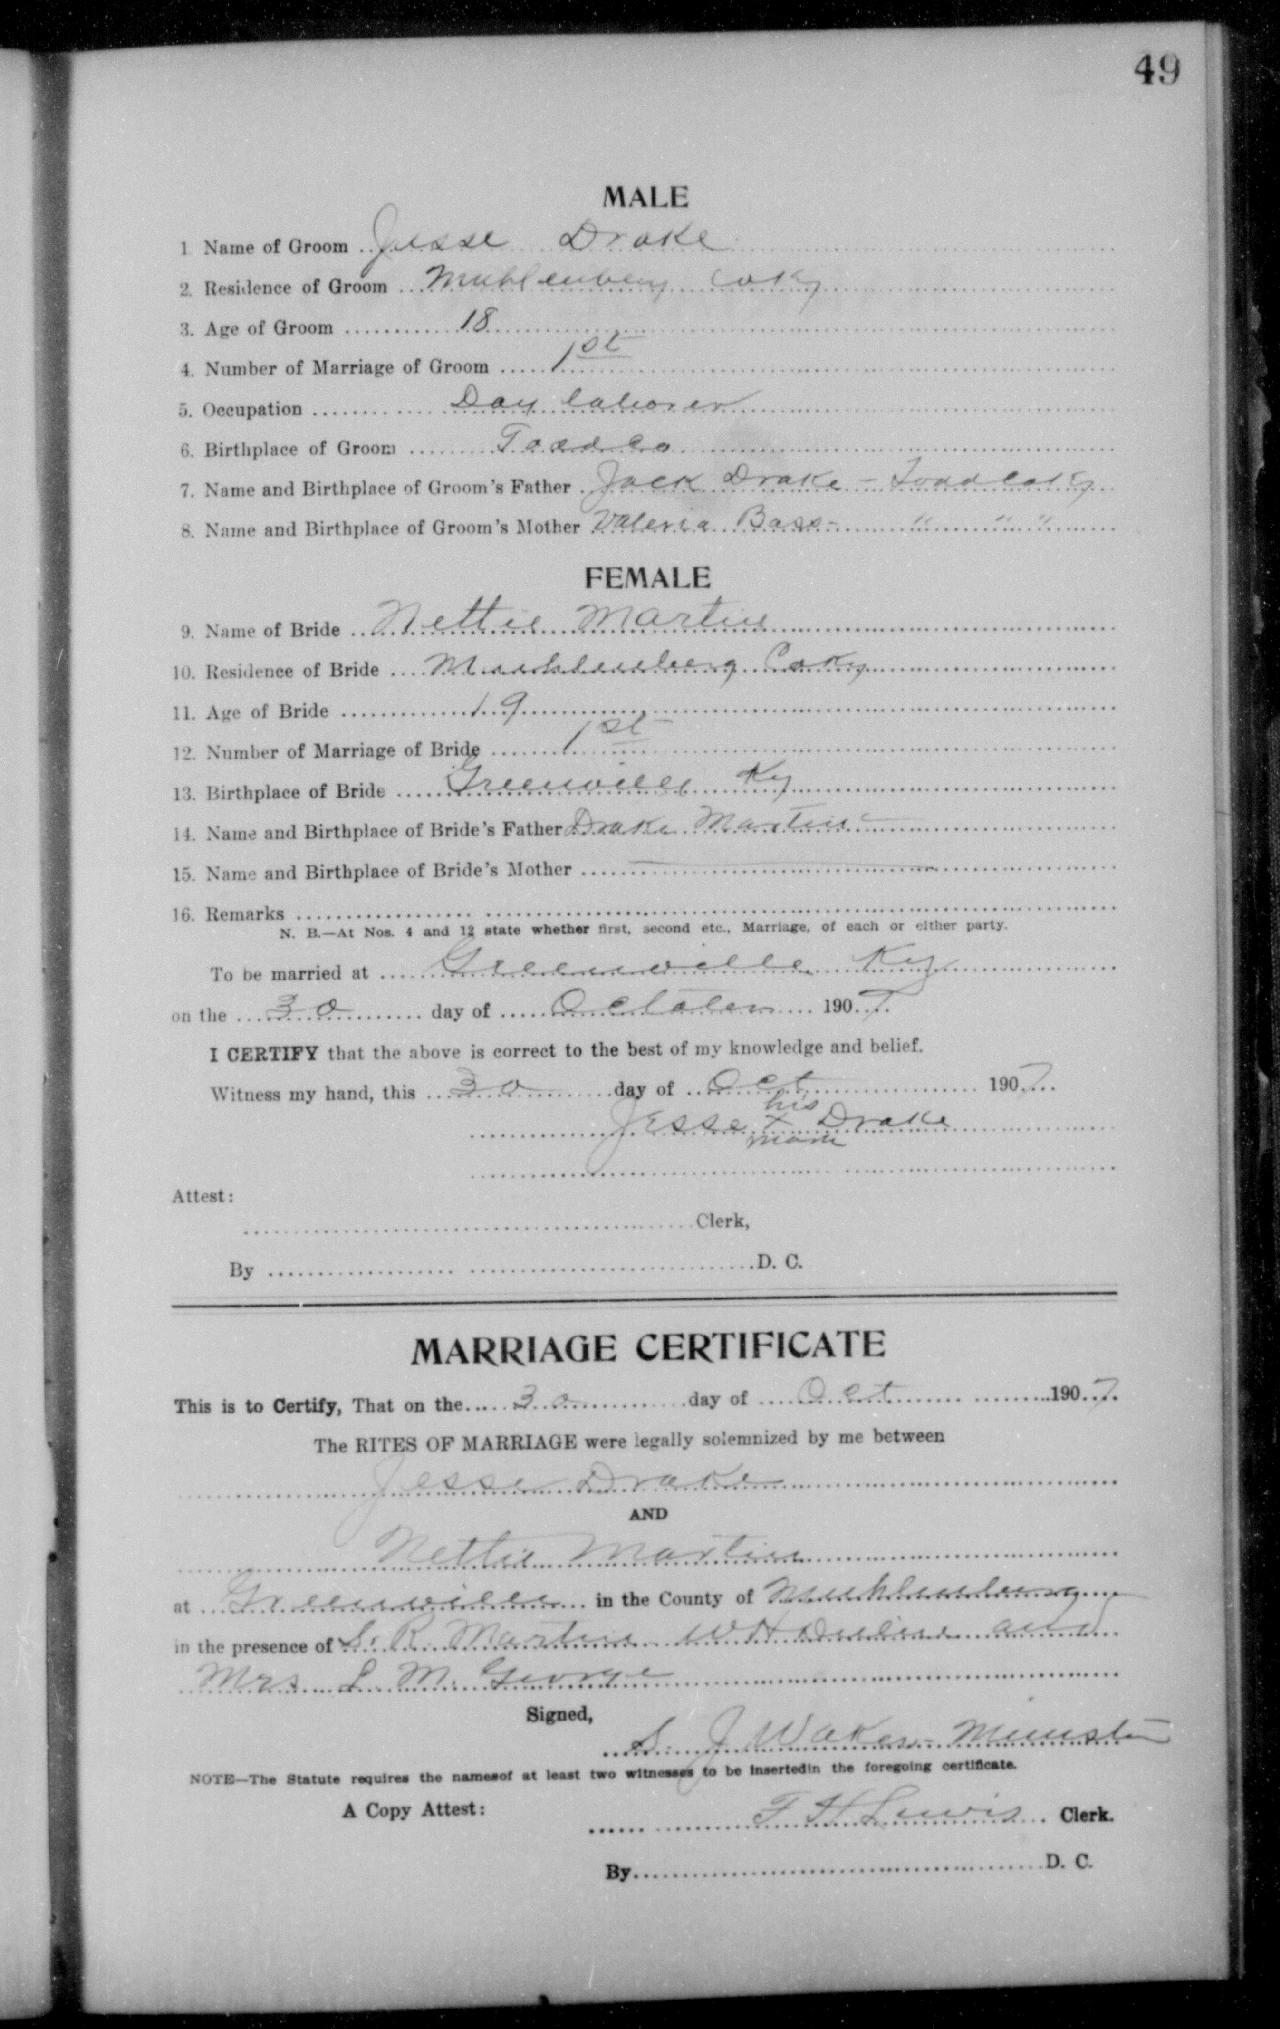 49
MALE
1. Name of Groom Jesse Drake
2. Residence of Groom Muhlenberg Co Ky
3. Age of Groom 18
4. Number of Marriage of Groom 1st
5. Occupation Day laborer
6. Birthplace of Groom Todd Co
7. Name and Birthplace of Groom's Father Jack Drake - Todd Co Ky
8. Name and Birthplace of Groom's Mother Valeria Bass - " " "
FEMALE
9. Name of Bride Nettie Martin
10. Residence of Bride Muhlenberg Co Ky
11. Age of Bride 19
12. Number of Marriage of Bride 1st
13. Birthplace of Bride Greenville Ky
14. Name and Birthplace of Bride's Father Drake Martin
15. Name and Birthplace of Bride's Mother
16. Remarks
N. B.—At Nos. 4 and 12 state whether first, second etc., Marriage, of each or either party.
To be married at Greenville Ky
on the 30 day of October 1907
I CERTIFY that the above is correct to the best of my knowledge and belief.
Witness my hand, this 30 day of Oct 1907
his
Jesse x Drake
mark
Attest:
Clerk,
By D. C.
MARRIAGE CERTIFICATE
This is to Certify, That on the 30 day of Oct 1907
The RITES OF MARRIAGE were legally solemnized by me between
Jesse Drake
AND
Nettie Martin
at Greenville in the County of Muhlenberg
in the presence of S. R. Martin W H and
Mrs L. M. George
Signed,
S. J. Minister
NOTE—The Statute requires the namesof at least two witnesses to be insertedin the foregoing certificate.
A Copy Attest:
F H Lewis Clerk.
By D. C.